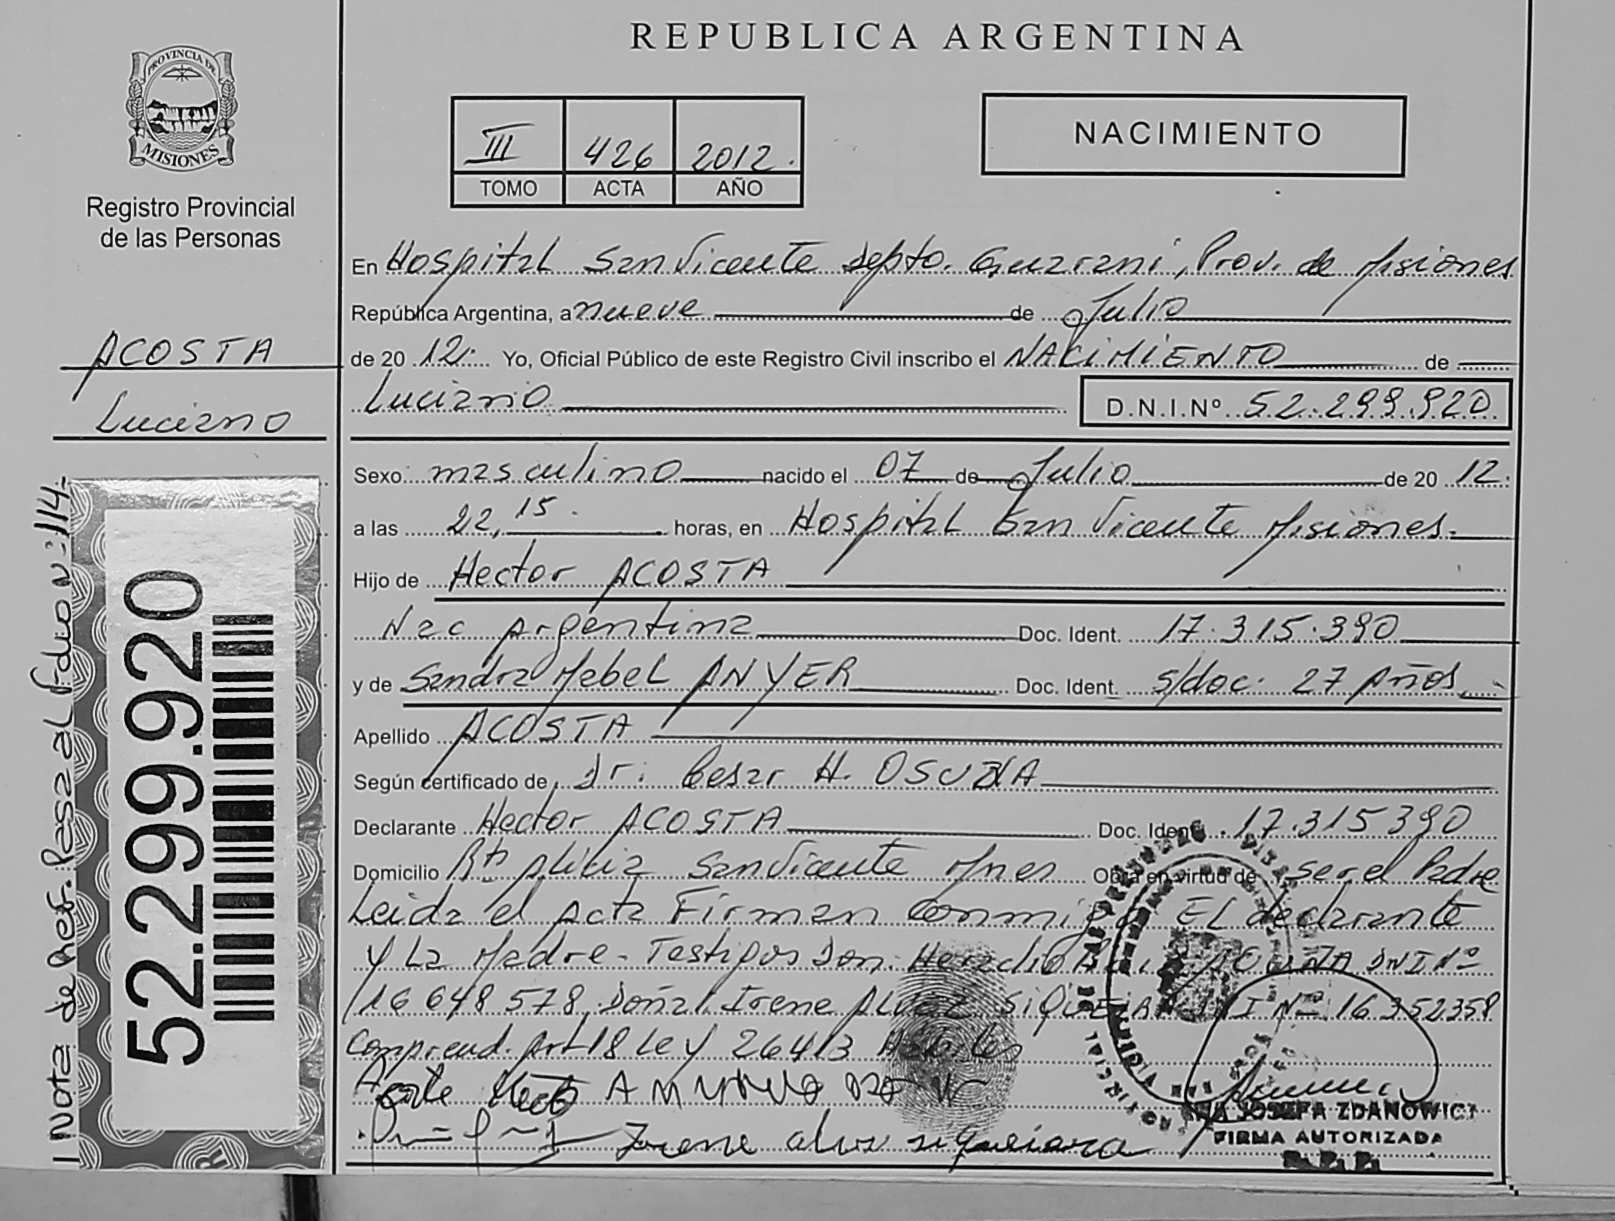 REPUBLICA ARGENTINA
PROVINCIA DE
MISIONES
Registro Provincial
de las Personas
III 426 2012.
TOMO ACTA AÑO
NACIMIENTO
En Hospital San Vicente Depto. Guarani, Prov. de Misiones
República Argentina, a nueve de Julio
de 2012. Yo, Oficial Público de este Registro Civil inscribo el NACIMIENTO de
Luciano D.N.I.Nº 52.299.920
ACOSTA
Luciano
Sexo: masculino nacido el 07 de Julio de 2012.
a las 22,15. horas, en Hospital San Vicente Misiones.
Hijo de Hector ACOSTA
Nac Argentina Doc. Ident. 17.315.390
y de Sandra Mabel ANYER Doc. Ident. s/doc. 27 Años
Apellido ACOSTA
Según certificado de Dr. Cesar H. OSUNA
Declarante Hector ACOSTA Doc. Ident. 17.315390
Domicilio San Vicente Mnes Obra en virtud de ser el Padre
Leida el Acta Firman Conmigo EL declarante
y La Madre - Testigos Don. DNI Nº
16 648 578, Doña. Irene ALVEZ SIQUEIRA DNI Nº 16 352358
Comprend. Art 18 Ley 26413
Irene alves siqueira
JOSEFA ZDANOWICZ
FIRMA AUTORIZADA
R. P. P.
52.299.920
Nota de Ref. Pasa al Folio Nº 114.